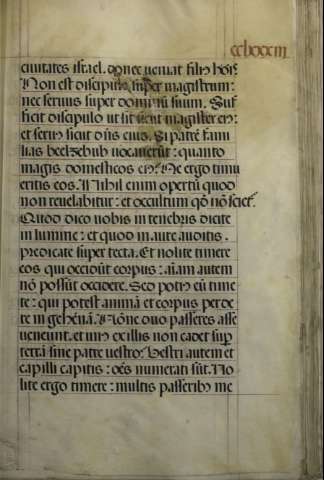 cclxxxiii
ciuitates israel. donec ueniat fili9 hoīs.
Non est discipul9 super magistrum:
nec seruus super dominū suum. Suf
ficit discipulo ut sit sicut magister ei9:
et seru9 sicut dn̄s eius. Si patrē fami
lias beelzebub uocauerūt: quanto
magis domesticos ei9? Ne ergo timu
eritis eos. Nihil enim opertū quod
non reuelabitur: et occultum qd̄ nō sciet᷑.
Quod dico uobis in tenebris dicite
in lumine: et quod in aure auditis.
predicate super tecta. Et nolite timere
eos qui occidūt corpus: aīam autem
nō possūt occidere. Sed poti9 eū time
te: qui potest animā et corpus perde
re in gehēnā. Nōne duo passeres asse
ueneunt. et un9 ex illis non cadet sup̄
terrā sine patre uestro? Vestri autem et
capilli capitis: oēs numerati sūt. No
lite ergo timere: multis passerib9 me